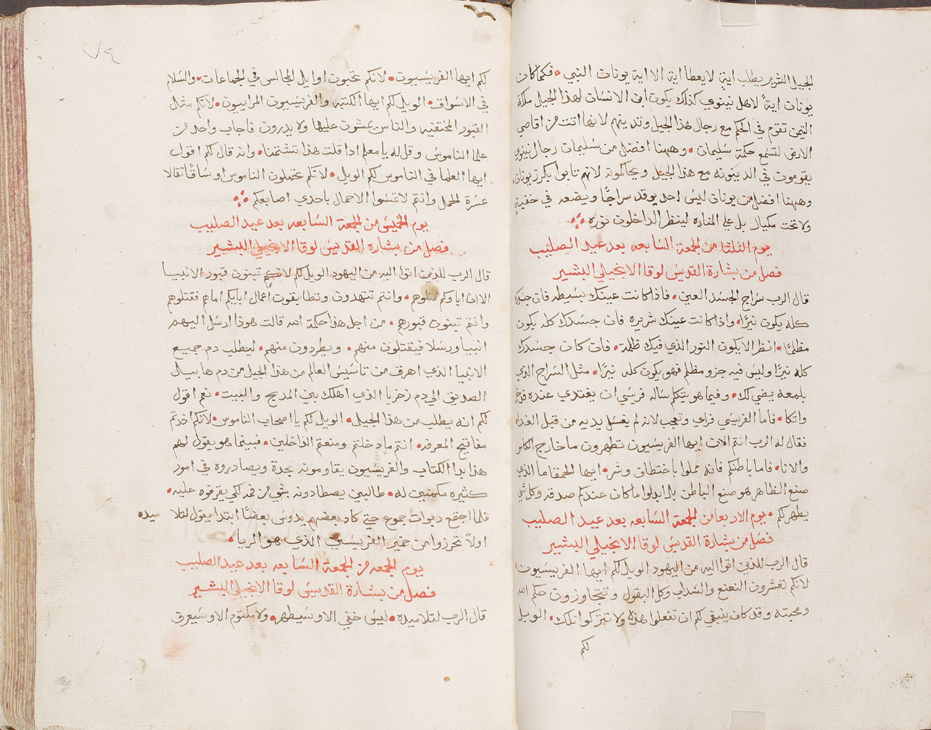 الجيل الشرير يطلب اية لا يعطا اية الا اية يونات النبي فكما كان
يونات اية لاهل نينوي كذلك يكون ابن الانسان لهذا الجيل ملكة
التيمن تقوم في الحكم مع رجال هذا الجيل وتدينهم لانها اتت من اقاصي
الارض لتسمع حكمة سليمان وههنا افضل من سليمان رجال نينوي
يقومون في الدينونه مع هذا الجيل ويحاكمونه لانهم تابوا بكرز يونان
وههنا افضل من يونان ليس احد يوقد سراجًا ويضعه في خفية
ولا تحت مكيال بل علي المناره لينظر الداخلون نوره
يوم الثلثا من الجمعة السابعه بعد عيد الصليب
فصل من بشارة القديس لوقا الانجيلي البشير
قال الرب سراج الجسد العين فاذا كانت عينك بسيطه فان جسدك
كله يكون نيرًا واذا كانت عينك شريره فان جسدك كله يكون
مظلمًا انظر الا يكون النور الذي فيك ظلمة فان كان جسدك
كله نيرًا وليس فيه جزو مظلم فهو يكون كله نيرًا مثل السراج الذي
بلمعه يضي لك وفيما هو يتكلم ساله فريسي ان يتغدي عنده فدخل
واتكا فاما الفريسي فراي وتعجب لانه لم يغسل يديه من قبل الغدا
فقال له الرب انتم الان ايها الفريسيون تطهرون ما خارج الكاس
والانا فاما باطنكم فانه مملوا باختطاف وشر ايها الحمقا اما الذي
صنع الظاهر هو صنع الباطن بل ابدلوا ما كان عندكم صدقه وكل شي
يطهر لكم يوم الاربعا من الجمعة السابعه بعد عيد الصليب
فصل من بشارة القديس لوقا الانجيلي البشير
قال الرب للذين اتوا اليه من اليهود الويل لكم ايها الفريسيون
لانكم تعشرون النعنع والسداب وكل البقول وتتجاوزون حكم الله
ومحبته وقد كان ينبغي لكم ان تفعلوا هذه ولا تتركوا تلك الويل
لكم
٧٤
لكم ايها الفريسيون لانكم تحبون اوايل المجالس في الجماعات والسلام
في الاسواق الويل لكم ايها الكتبة والفريسيون المراييون لانكم مثل
القبور المختفيه والناس يمشون عليها ولا يدرون فاجاب واحد من
علما الناموس وقال له يا معلم اذا قلت هذا تشتمنا وانه قال لكم اقول
ايها العلما في الناموس لكم الويل لانكم تحملون الناموس اوساقًا ثقالا
عسرة الحمل وانتم لا تمسوا الاحمال باحدي اصابعكم
يوم الخميس من الجمعة السابعه بعد عيد الصليب
فصل من بشارة القديس لوقا الانجيلي البشير
قال الرب للذين اتوا اليه من اليهود الويل لكم لانكم تبنون قبور الانبيا
الا ان اباوكم قتلوهم وانتم تشهدون وتطابقون اعمال ابايكم امامهم قتلوهم
وانتم تبنون قبورهم من اجل هذا حكمة الله قالت هوذا ارسل اليهم
انبيا ورسلا فيقتلون منهم ويطردون منهم ليطلب دم جميع
الانبيا الذي اهرق من تاسيس العالم من هذا الجيل من دم هابيل
الصديق الي دم زخريا الذي اهلك بين المذبح والبيت نعم اقول
لكم انه يطلب من هذا الجيل الويل لكم يا اصحاب الناموس لانكم اخذتم
مفاتيح المعرفه انتم ما دخلتم ومنعتم الداخلين فبينما هو يقول لهم
هذا بدا الكتاب والفريسيون يقاومونه بحدة ويصادروه في امور
كثيره مكمنين له طالبين يصطادونه بشي من فمه لكي يقرفوه عليه
فلما اجتمع ربوات جموع حتي كاد بعضهم يدوس بعضًا ابتدا يقول لتلا ميده
اولاً تحرزوا من خمير الفريسيين الذي هو الريا
يوم الجمعه من الجمعة السابعه بعد عيد الصليب
فصل من بشارة القديس لوقا الانجيلي البشير
قال الرب لتلاميذه ليس خفي الا وسيظهر ولا مكتوم الا وسيعرف